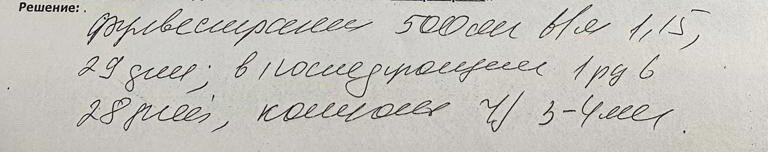 Решение:
фулвестрант 500мг в/м 1,15,
29 дни, в последующем 1 раз в
28 дней, контроль ч/з 3-4 мес.